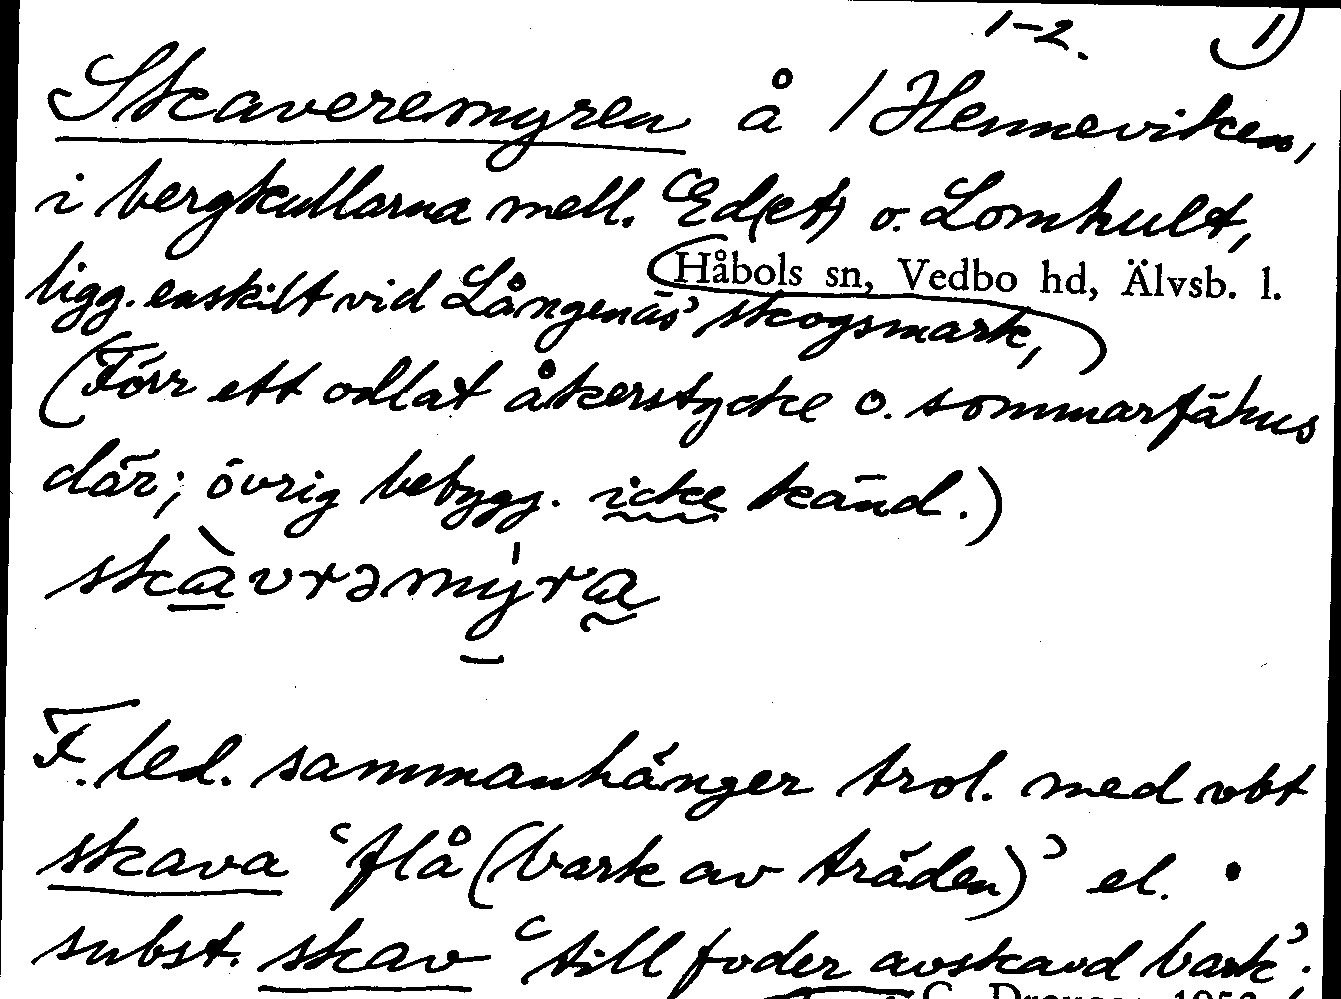 1-2. 1)
Skaveremyren å /Henneviken,
i bergkullarna mell. Ed(et) o. Lomhult,
Håbols sn, Vedbo hd, Älvsb. l.
ligg. enskilt vid Långenäs' skogsmark,
(Förr ett odlat åkerstycke o. sommarfähus
där; övrig bebygg. icke känd.)
skàvrəmýra
F. led. sammanhänger trol. med vbt
skava 'flå (bark av träden)' el.
subst. skav 'till foder avskavd bark';